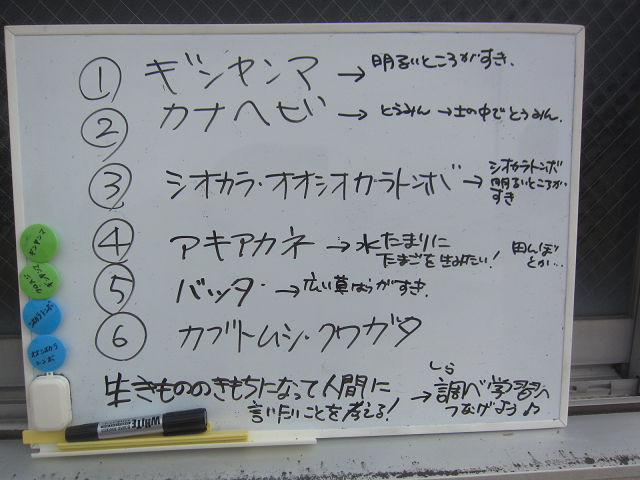 ① ギンヤンマ → 明るいところがすき.
② カナヘビ → とうみん → 土の中でとうみん.
③ シオカラ・オオシオカラトンボ → シオカラトンボ
明るいところが
すき
④ アキアカネ → 水たまりに
たまごを生みたい! 田んぼ
とか…
⑤ バッタ → 広い草はらがすき.
⑥ カブトムシ・クワガタ
生きもののきもちになって人間に
言いたいことを考える!
→ 調べ学習へ
しら
つなげよう♪
ギンヤンマ
シオカラトンボ
オオシオカラ
トンボ
WHITE